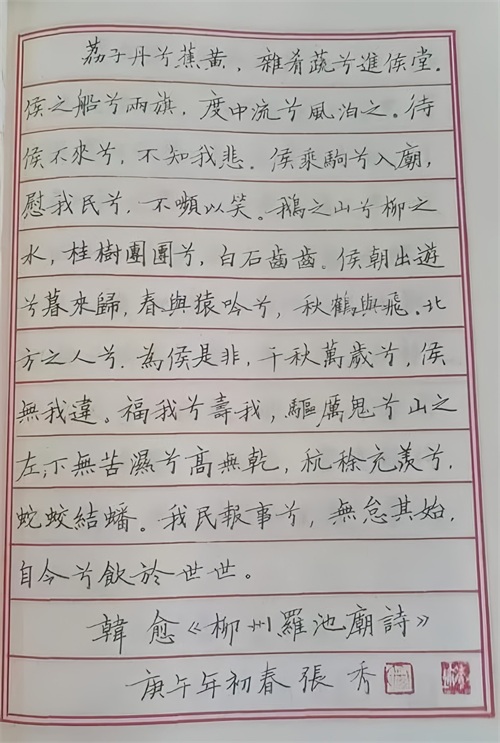 荔子丹兮蕉黃，雜肴蔬兮進侯堂。
侯之船兮兩旗，度中流兮風泊之。待
侯不來兮，不知我悲．侯乘駒兮入廟，
慰我民兮．不嚬以笑。鵝之山兮柳之
水，桂樹團團兮，白石齒齒。侯朝出遊
兮暮來歸，春與猿吟兮，秋鶴與飛．北
方之人兮．為侯是非，千秋萬歲兮，侯
無我違。福我兮壽我，驅厲鬼兮山之
左；下無苦濕兮高無乾，秔稌充羨兮，
蛇蛟結蟠。我民報事兮，無怠其始，
自今兮飲於世世。
韓愈《柳州羅池廟詩》
庚午年初春張秀